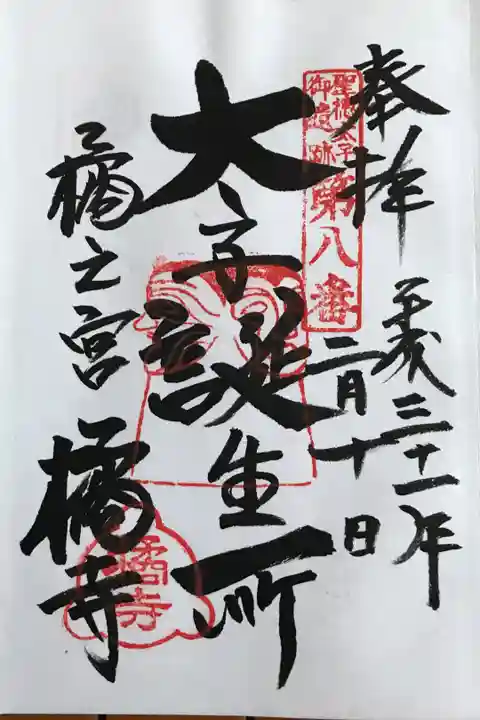 奉拝
平成三十一年
二月十日
聖徳太子
御遺跡
第八番
太子誕生所
橘之宮
橘寺
橘寺